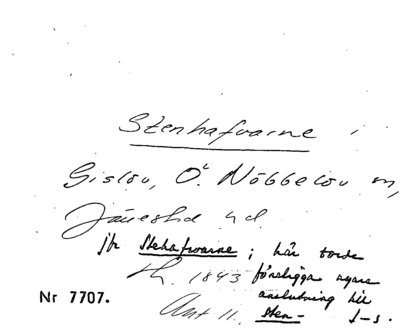 Stenhafvarne i
Gislöv, Ö. Nöbbelöv m,
Järrestad hd
jfr Stehafvarne ; här torde
h. 1843 föreligga nyare
anslutning till
Nr 7707. Ant 11. sten- J-s.